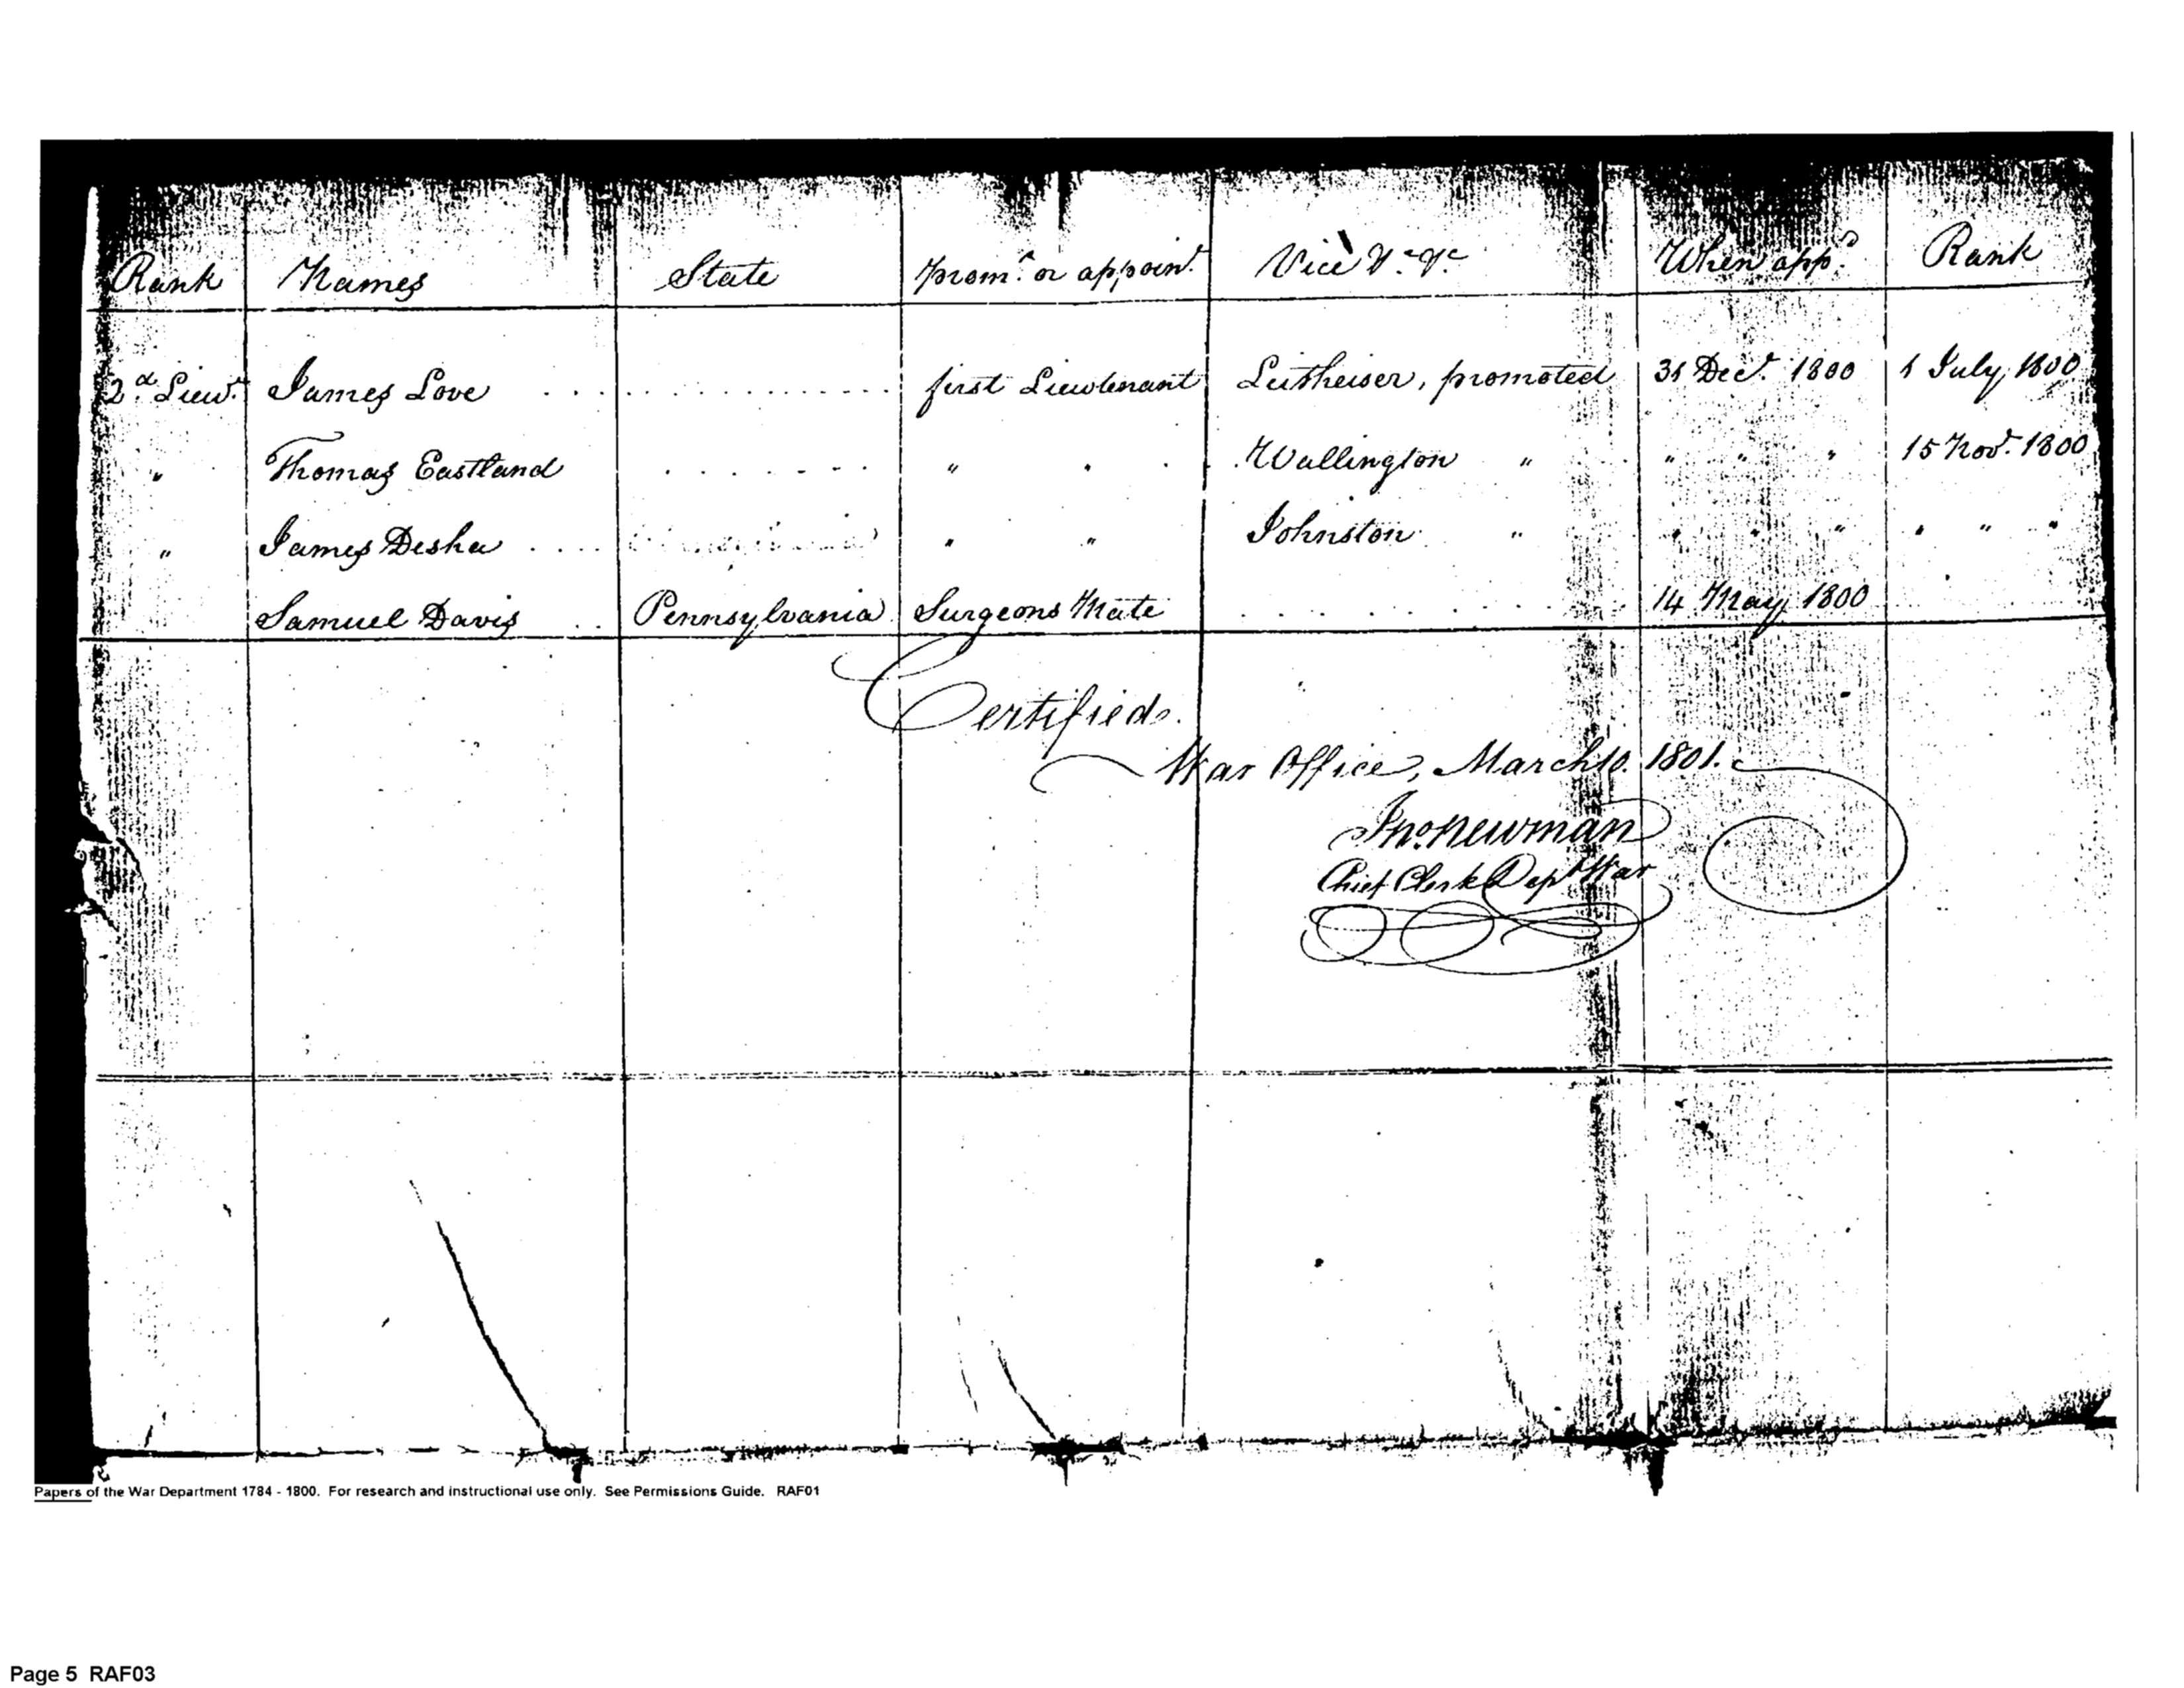 Rank Names State prom.ᵗ or appoin.ᵗ Vice &c. &c. When app.ᵈ Rank
2.ᵈ Lieu.ᵗ James Love . . . . . . . . . . . . . . . first Lieutenant Leitheiser, promoted 31 Dec.ʳ 1800 1 July, 1800
" Thomas Eastland . . . . . . . " " Wallington " " " " 15 Nov.ʳ 1800
" James Desha . . . . " " Johnston " " " " " " "
Samuel Davis . . Pennsylvania Surgeons Mate . . . . . . . . . 14 May, 1800
Certified.
War Office, March 10. 1801.
Jnº. Newman
Chief Clerk Depᵗ War
Papers of the War Department 1784 - 1800. For research and instructional use only. See Permissions Guide. RAF01
Page 5 RAF03